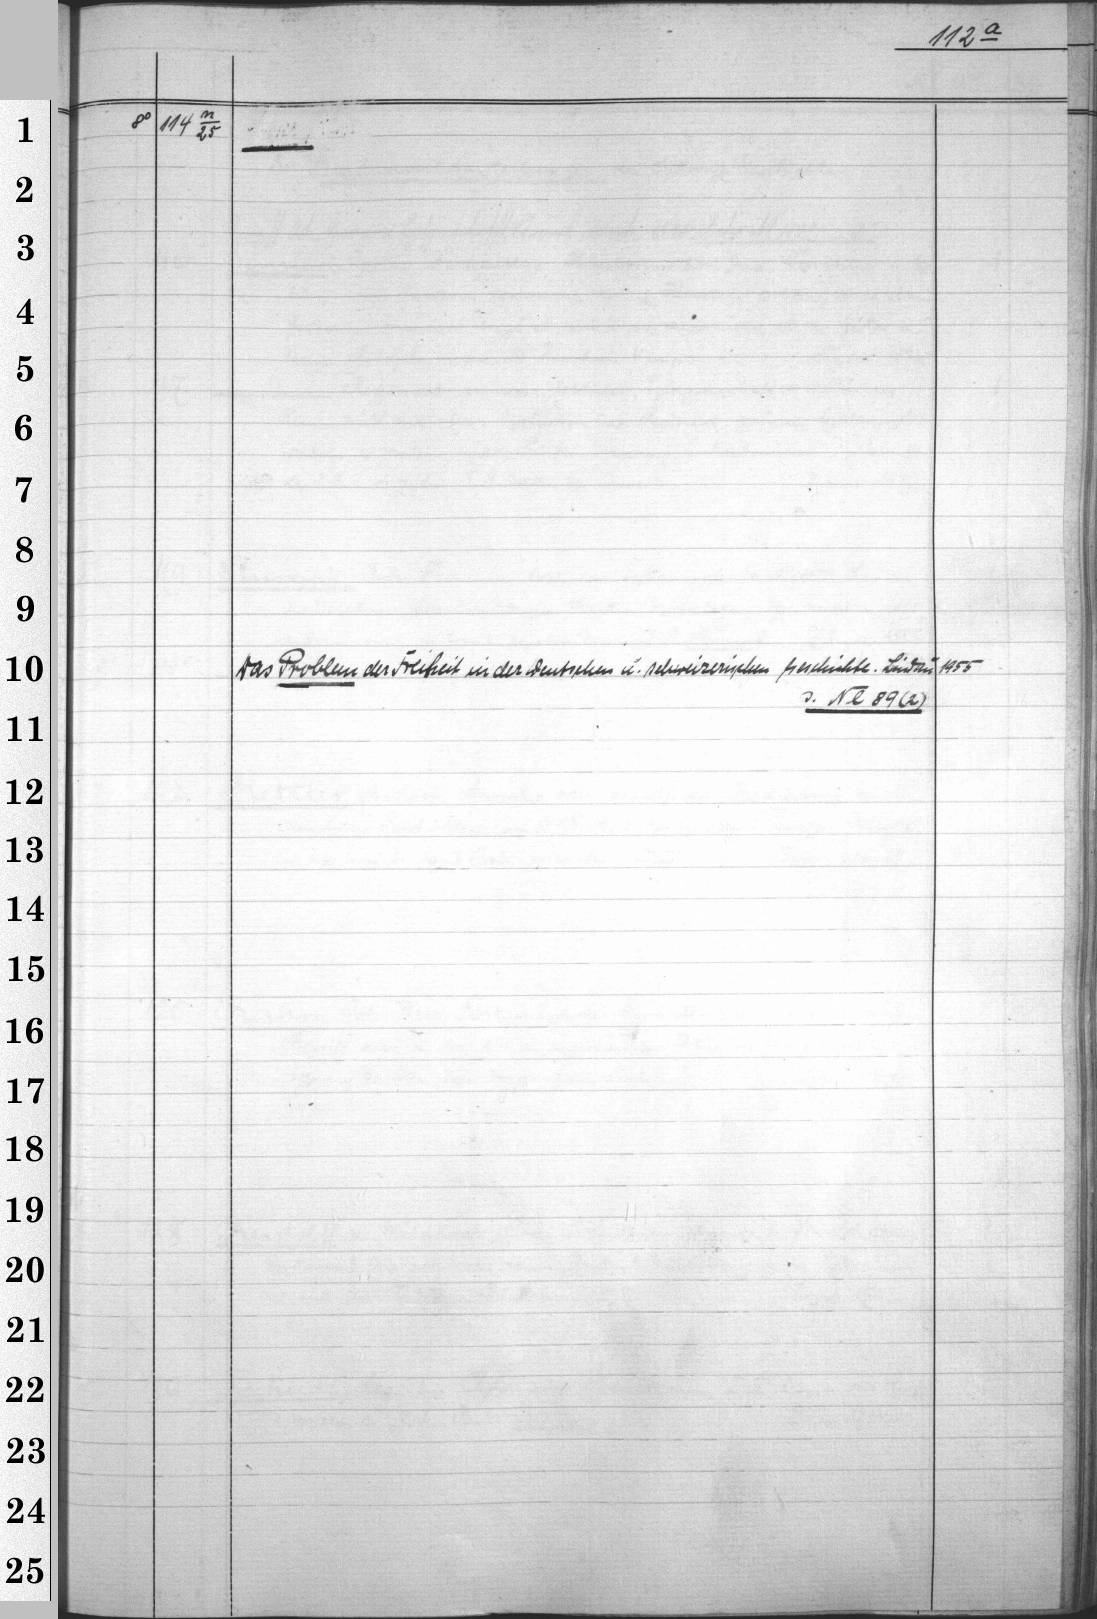 112 a
1
8° 114 n/25
2
3
4
5
6
7
8
9
10
Das Problem der Freiheit in der deutschen u. schweizerischen Geschichte. Lindau 1955
s. Nl 89(2)
11
12
13
14
15
16
17
18
19
20
21
22
23
24
25